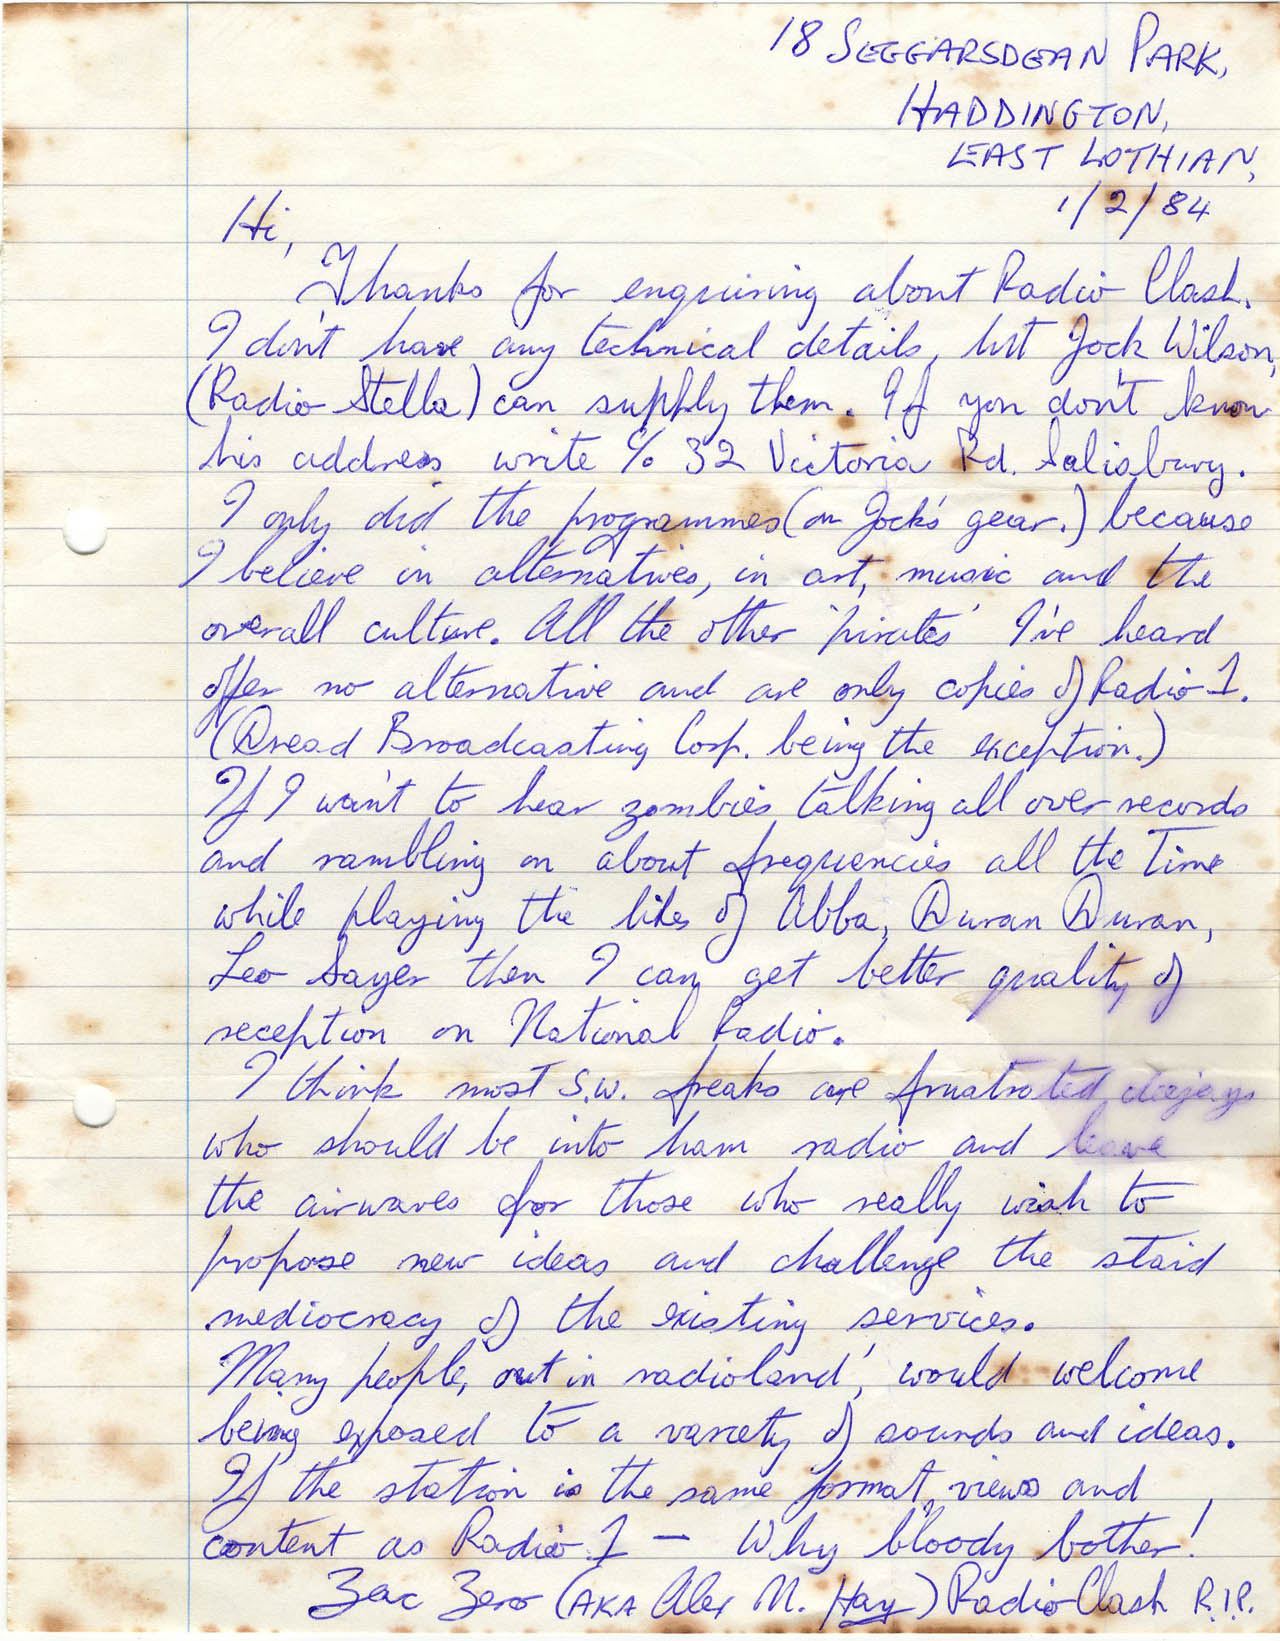 18 SEGGARSDEAN PARK,
HADDINGTON,
EAST LOTHIAN,
1/2/84
Hi,
Thanks for enquiring about Radio Clash.
I don't have any technical details, but Jock Wilson,
(Radio Stella) can supply them. If you don't know
his address write c/o 32 Victoria Rd. Salisbury.
I only did the programmes (on Jock's gear.) because
I believe in alternatives, in art, music and the
overall culture. All the other 'pirates' I've heard
offer no alternative and are only copies of Radio 1.
(Dread Broadcasting Corp. being the exception.)
If I wan't to hear zombies talking all over records
and rambling on about frequencies all the Time
while playing the likes of Abba, Duran Duran,
Leo Sayer then I can get better quality of
reception on National Radio.
I think most S.W. freaks are frustrated deejays
who should be into ham radio and leave
the airwaves for those who really wish to
propose new ideas and challenge the staid
mediocracy of the existing services.
Many people, out in radioland', would welcome
being exposed to a variety of sounds and ideas.
If the station is the same format, views and
content as Radio 1 — Why bloody bother!
Zac Zero (AKA Alex M. Hay) Radio Clash R.I.P.